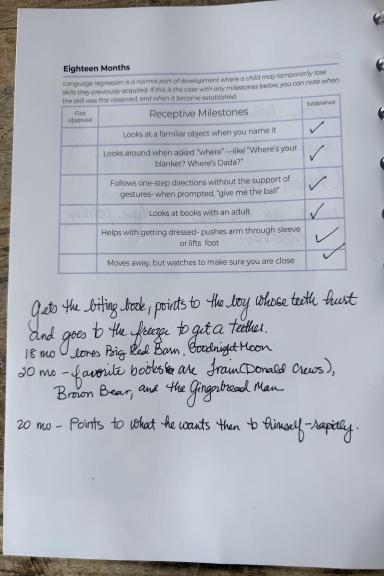 Eighteen Months
Language regression is a normal part of development where a child may temporarily lose
skills they previously acquired. If this is the case with any milestones below, you can note when
the skill was first observed, and when it become established.
First observed
Receptive Milestones
Established
Looks at a familiar object when you name it
Looks around when asked "where"—like "Where's your
blanket? Where's Dada?"
Follows one-step directions without the support of
gestures- when prompted, "give me the ball"
Looks at books with an adult
Helps with getting dressed- pushes arm through sleeve
or lifts foot
Moves away, but watches to make sure you are close
Gets the biting book, points to the boy whose teeth hurt
and goes to the freeze to get a teether.
18 mo loves Big Red Barn, Goodnight Moon
20 mo - favorite books are Train (Donald Crews),
Brown Bear, and the Gingerbread Man
20 mo - Points to what he wants then to himself - rapidly.